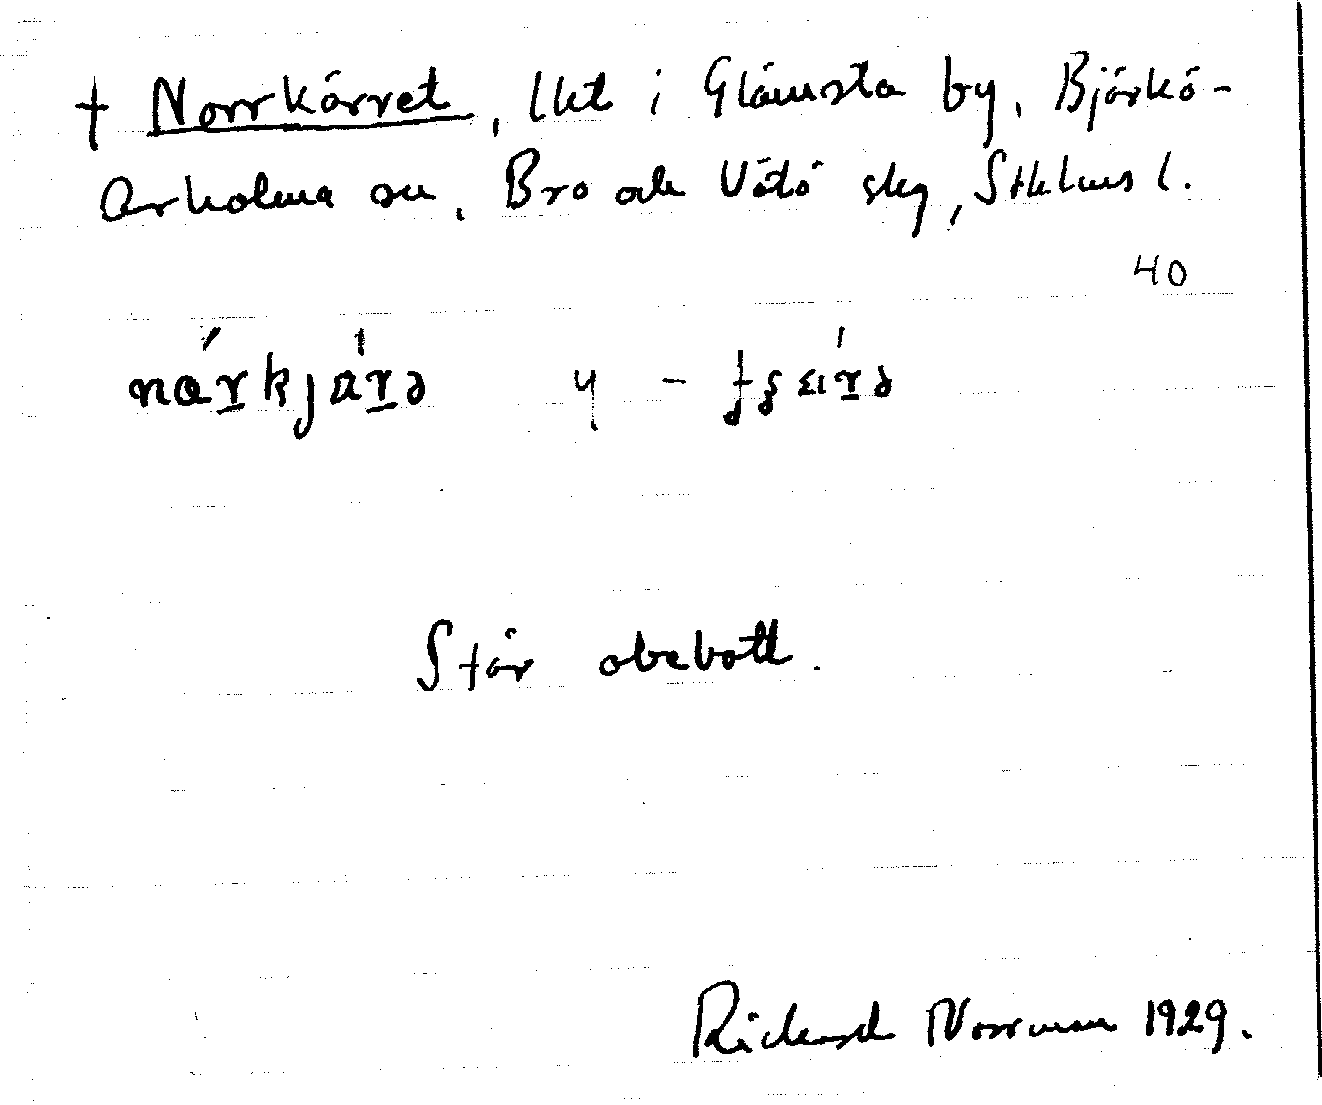 † Norrkärret, lht i Glämsta by, Björkö-
Arholma sn, Bro och Vätö skg, Sthlms l.
40
Står obebott.
Rickard Norrman 1929.